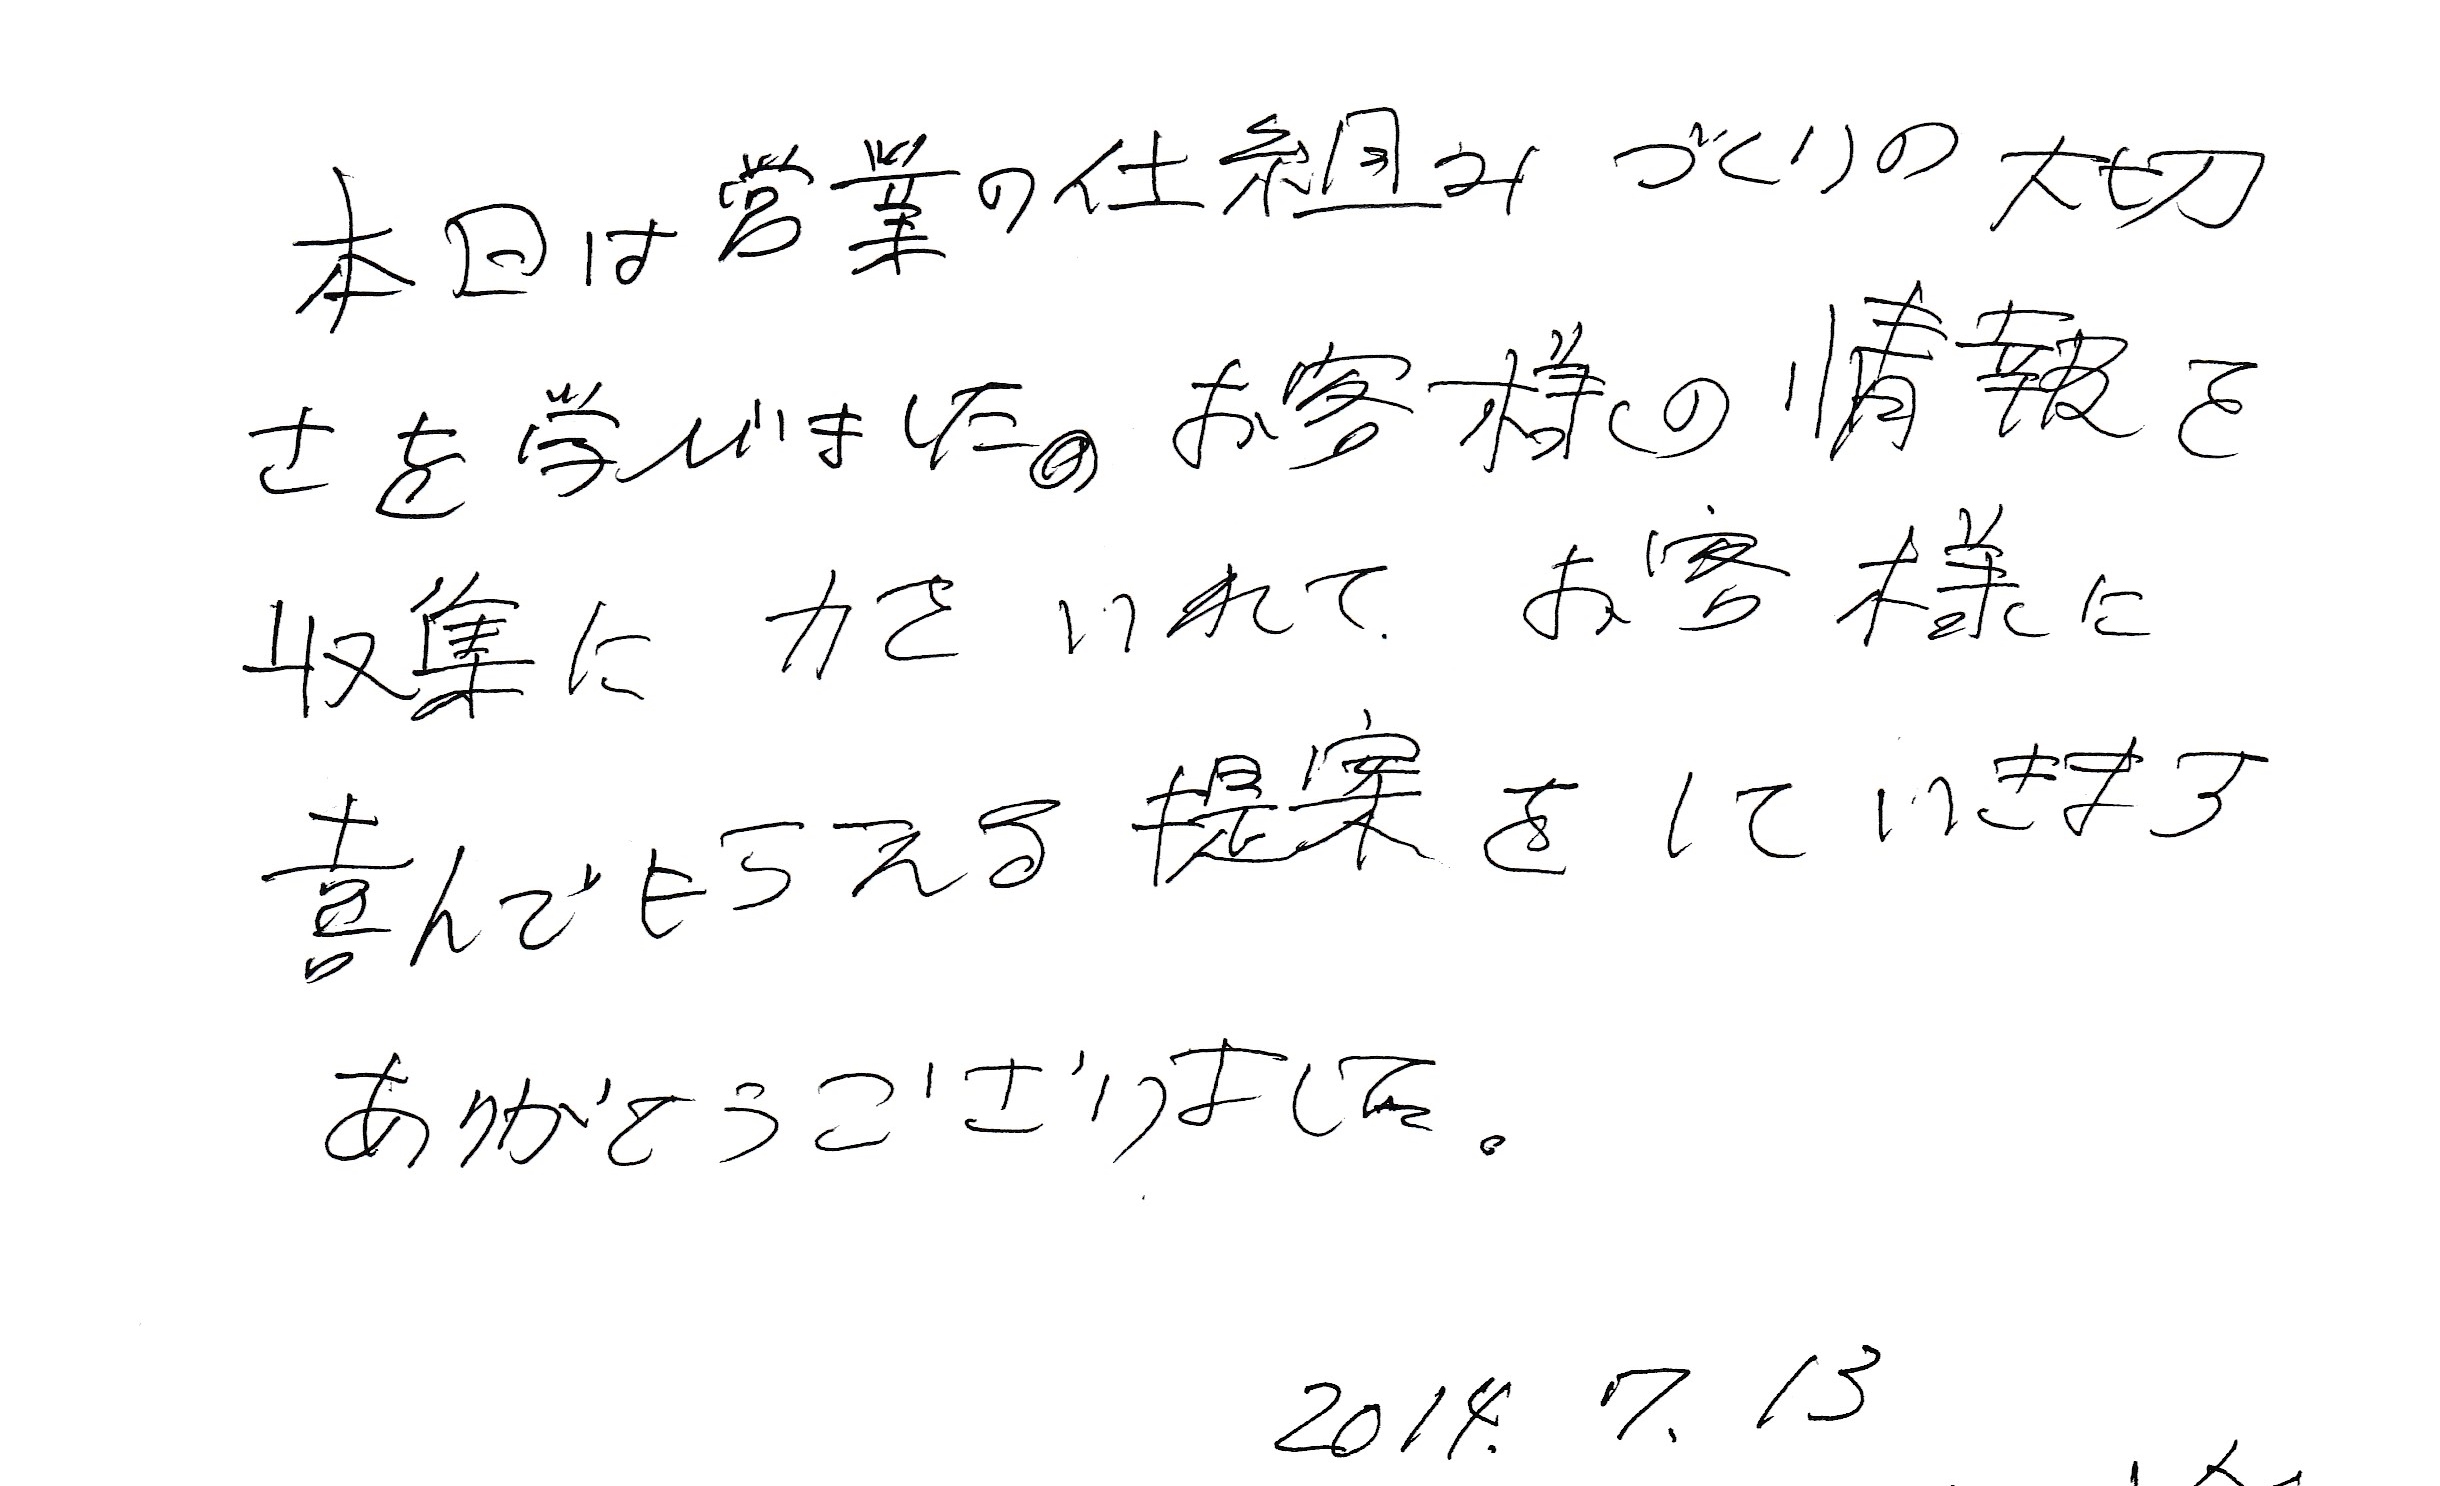 本回は営業の仕組みづくりの大切
さを学びました。お客様の情報を
収集に力をいれて、お客様に
喜んでもらえる提案をしていきます
ありがとうございました。
2014. 7. 13